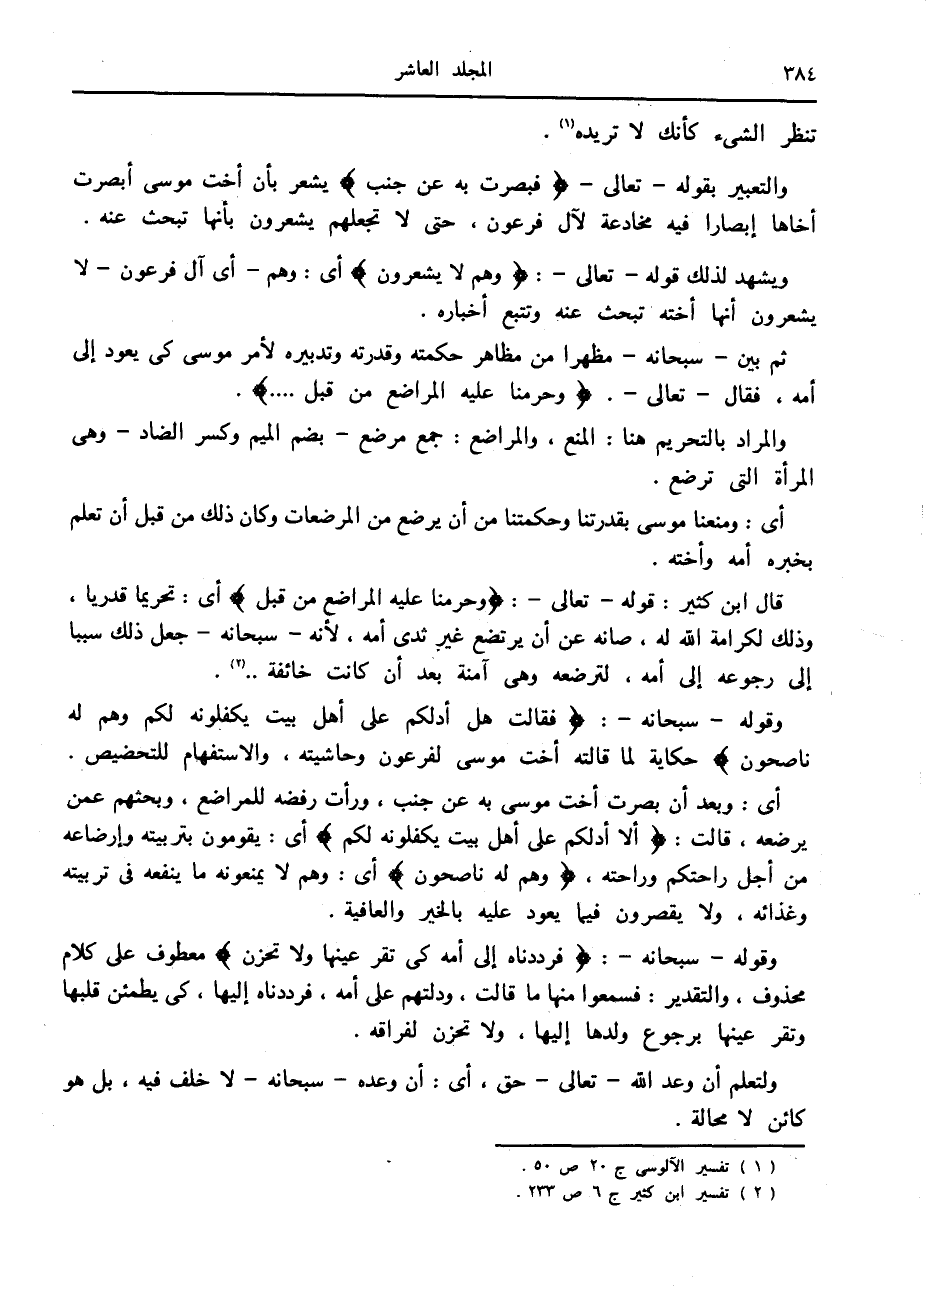 ٣٨٤ المجلد العاشر
تنظر الشىء كأنك لا تريده(١) .
والتعبير بقوله - تعالى - ﴿ فبصرت به عن جنب ﴾ يشعر بأن أخت موسى أبصرت
أخاها إبصارا فيه مخادعة لآل فرعون ، حتى لا تجعلهم يشعرون بأنها تبحث عنه .
ويشهد لذلك قوله - تعالى - : ﴿ وهم لا يشعرون ﴾ أى : وهم - أى آل فرعون - لا
يشعرون أنها أخته تبحث عنه وتتبع أخباره .
ثم بين - سبحانه - مظهرا من مظاهر حكمته وقدرته وتدبيره لأمر موسى كى يعود إلى
أمه ، فقال - تعالى - . ﴿ وحرمنا عليه المراضع من قبل ....﴾ .
والمراد بالتحريم هنا : المنع ، والمراضع : جمع مرضع - بضم الميم وكسر الضاد - وهى
المرأة التى ترضع .
أى : ومنعنا موسى بقدرتنا وحكمتنا من أن يرضع من المرضعات وكان ذلك من قبل أن تعلم
بخبره أمه وأخته .
قال ابن كثير : قوله - تعالى - : ﴿وحرمنا عليه المراضع من قبل ﴾ أى : تحريما قدريا ،
وذلك لكرامة الله له ، صانه عن أن يرتضع غير ثدى أمه ، لأنه - سبحانه - جعل ذلك سببا
إلى رجوعه إلى أمه ، لترضعه وهى آمنة بعد أن كانت خائفة ..(٢) .
وقوله - سبحانه - : ﴿ فقالت هل أدلكم على أهل بيت يكفلونه لكم وهم له
ناصحون ﴾ حكاية لما قالته أخت موسى لفرعون وحاشيته ، والاستفهام للتحضيض .
أى : وبعد أن بصرت أخت موسى به عن جنب ، ورأت رفضه للمراضع ، وبحثهم عمن
يرضعه ، قالت : ﴿ ألا أدلكم على أهل بيت يكفلونه لكم ﴾ أى : يقومون بتربيته وإرضاعه
من أجل راحتكم وراحته ، ﴿ وهم له ناصحون ﴾ أى : وهم لا يمنعونه ما ينفعه فى تربيته
وغذائه ، ولا يقصرون فيما يعود عليه بالخير والعافية .
وقوله - سبحانه - : ﴿ فرددناه إلى أمه كى تقر عينها ولا تحزن ﴾ معطوف على كلام
محذوف ، والتقدير : فسمعوا منها ما قالت ، ودلتهم على أمه ، فرددناه إليها ، كى يطمئن قلبها
وتقر عينها برجوع ولدها إليها ، ولا تحزن لفراقه .
ولتعلم أن وعد الله - تعالى - حق ، أى : أن وعده - سبحانه - لا خلف فيه ، بل هو
كائن لا محالة .
( ١ ) تفسير الآلوسى ج ٢٠ ص ٥٠ .
( ٢ ) تفسير ابن كثير ج ٦ ص ٢٣٣ .